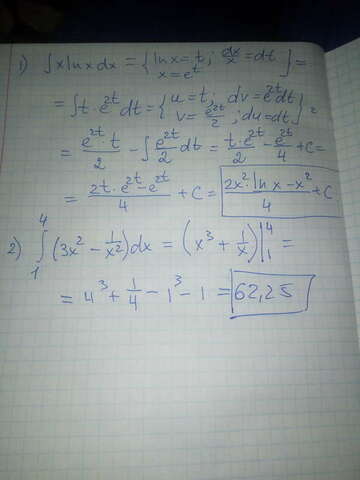 1) ∫x ln x dx = { ln x = t ; dx/x = dt
x = e^t } =
= ∫t · e^2t dt = { u = t ; dv = e^2t dt
v = e^2t/2 ; du = dt } =
= e^2t · t/2 − ∫ e^2t/2 dt = t · e^2t/2 − e^2t/4 + C =
= 2t · e^2t − e^2t/4 + C = 2x² · ln x − x²/4 + C
2) ∫₁⁴ (3x² − 1/x²) dx = (x³ + 1/x) |₁⁴ =
= 4³ + 1/4 − 1³ − 1 = 62,25